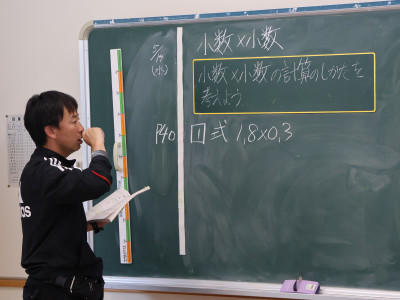 小数×小数
小数×小数の計算のしかたを
考えよう
(水)
P40 1 式 1,8×0,3